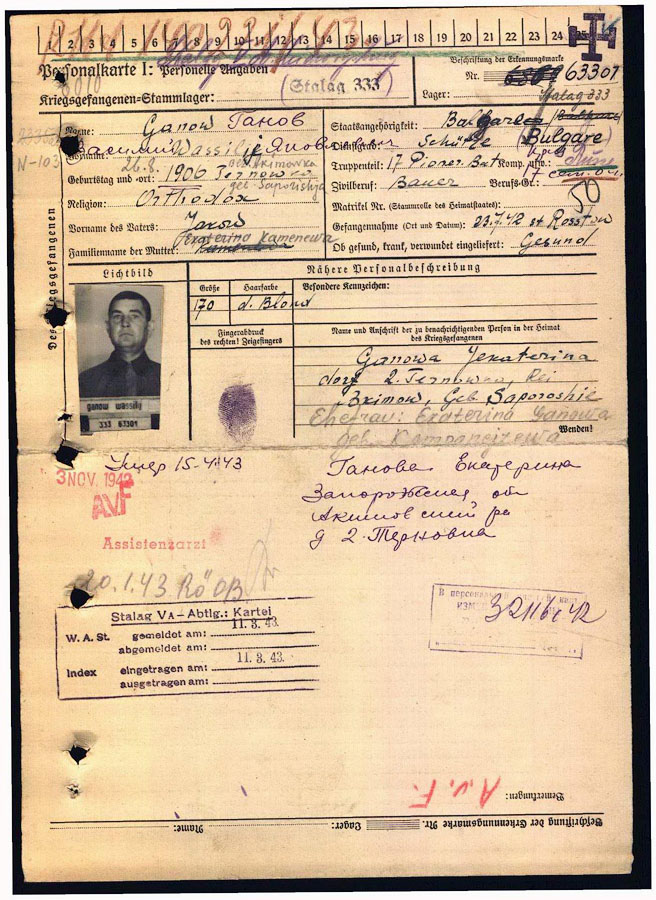 1 2 3 4 5 6 7 8 9 10 11 12 13 14 15 16 17 18 19 20 21 22 23 24 25
Personalkarte I: Personelle Angaben
Beschriftung der Erkennungsmarke
Stalag 333
Nr. 63307
Kriegsgefangenen-Stammlager:
Lager: Stalag 333
Name: Ganow Ганов
Staatsangehörigkeit: Bulgare
Bulgare
Vorname: Василий Wassilje Яковлевич
Dienstgrad: Schütze
N-103
Truppenteil: 17 Pioner Bat Komp. usw.:
26.8.
Geburtstag und -ort: 1906 Ternowka
geb Saporishje
Zivilberuf: Bauer Berufs-Gr.:
50
Religion: Orthodox
Matrikel Nr. (Stammrolle des Heimatstaates):
Vorname des Vaters: Jakow
Gefangennahme (Ort und Datum): 23.7.42 st Rosstow
Ekaterina Kamenewa
Familienname der Mutter:
Ob gesund, krank, verwundet eingeliefert: Gesund
Des Kriegsgefangenen
Lichtbild
Nähere Personalbeschreibung
Größe Haarfarbe Besondere Kennzeichen:
170 d. Blond
Fingerabdruck
des rechten! Zeigefingers
Name und Anschrift der zu benachrichtigenden Person in der Heimat
des Kriegsgefangenen
Ganowa Jekaterina
dorf 2. Ternowka, Rei
Akimow, Geb Saporoshie
Ehefrau: Ekaterina Ganowa
geb. Kompanejzewa
ganow wassilij
333 67301
Wenden!
Умер 15.4.43
3 NOV. 1942
AVF
Assistenzarzt
Ганова Екатерина
Запорожская об
Акимовский ра
д 2. Терновка
20.1.43 Rö OB
Stalag VA – Abtlg.: Kartei
W. A. St. gemeldet am: 11. 3. 43.
abgemeldet am:
Index eingetragen am: 11. 3. 43.
ausgetragen am:
В персональной
A.v.F.
Bemerkungen:
Beschriftung der Erkennungsmarke Nr. Lager: Name: